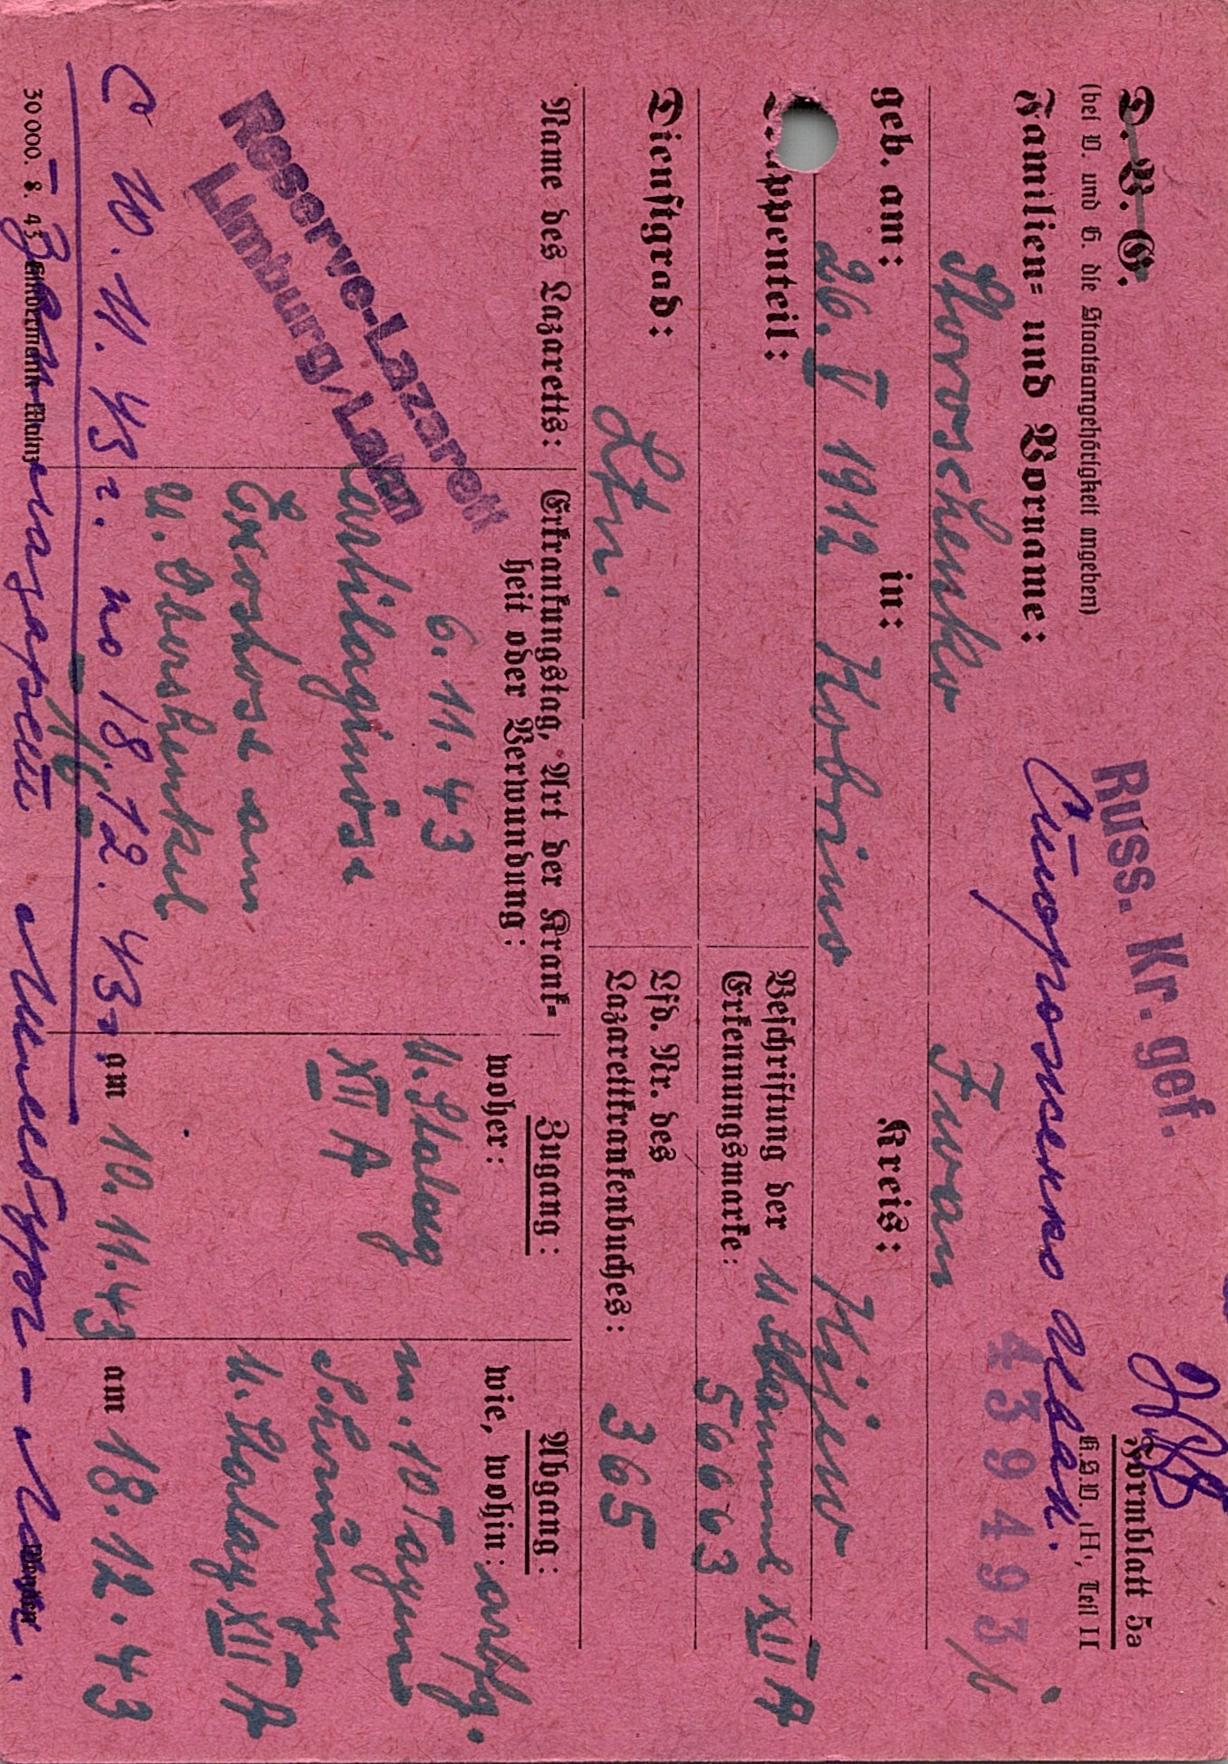 Russ. Kr. gef.
D. V. E.
Formblatt 5a
(bei V. und E. die Staatsangehörigkeit angeben)
K.S.V. (H), Teil II
Familien= und Vorname:
Сторошенко Иван.
439493
Storoschenko Iwan
geb. am: 26. V 1912 in: Kobrino Kreis: Kijew
Truppenteil:
Beschriftung der Erkennungsmarke: M Stammel XII A
56663
Dienstgrad: Ltn.
Lfd. Nr. des Lazarettkrankenbuches: 365
Name des Lazaretts:
Reserve-Lazarett
Limburg/Lahn
Erkrankungstag, Art der Krank=
heit oder Verwundung:
6. 11. 43
Cartilaginöse
Exostose am
li. Oberschenkel
Zugang:
woher:
M. Stalag
XII A
am 10. 11. 43
Abgang:
wie, wohin: arbfg.
n. 10 Tagen
Schonung
M. Stalag XII A
am 18. 12. 43
С 10. 11. 43 г. по 18. 12. 43 г.
30000. 8. 43
Лимбург - Лан.